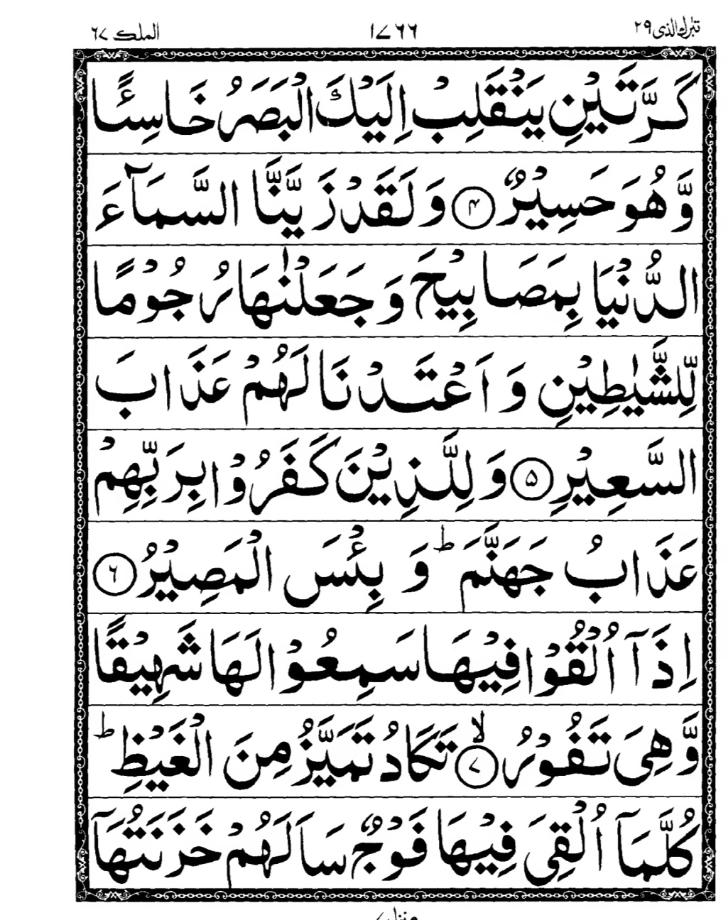 تبٰرك الذى ٢٩ ١٧٦٦ الملك ٦٧
كَرَّتَيْنِ يَنْقَلِبْ اِلَيْكَ الْبَصَرُ خَاسِئًا
وَّهُوَ حَسِيْرٌ ۴ وَلَقَدْ زَيَّنَّا السَّمَآءَ
الدُّنْيَا بِمَصَابِيْحَ وَجَعَلْنٰهَا رُجُوْمًا
لِّلشَّيٰطِيْنِ وَاَعْتَدْنَا لَهُمْ عَذَابَ
السَّعِيْرِ ۵ وَلِلَّذِيْنَ كَفَرُوْا بِرَبِّهِمْ
عَذَابُ جَهَنَّمَ ؕ وَبِئْسَ الْمَصِيْرُ ۶
اِذَآ اُلْقُوْا فِيْهَا سَمِعُوْا لَهَا شَهِيْقًا
وَّهِىَ تَفُوْرُ ۙ ۷ تَكَادُ تَمَيَّزُ مِنَ الْغَيْظِ ؕ
كُلَّمَآ اُلْقِىَ فِيْهَا فَوْجٌ سَاَلَهُمْ خَزَنَتُهَآ
منزل ٧